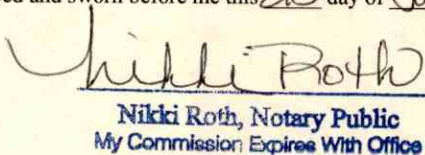 ed and sworn before me this day of
Nikki Roth
Nikki Roth, Notary Public
My Commission Expires With Office